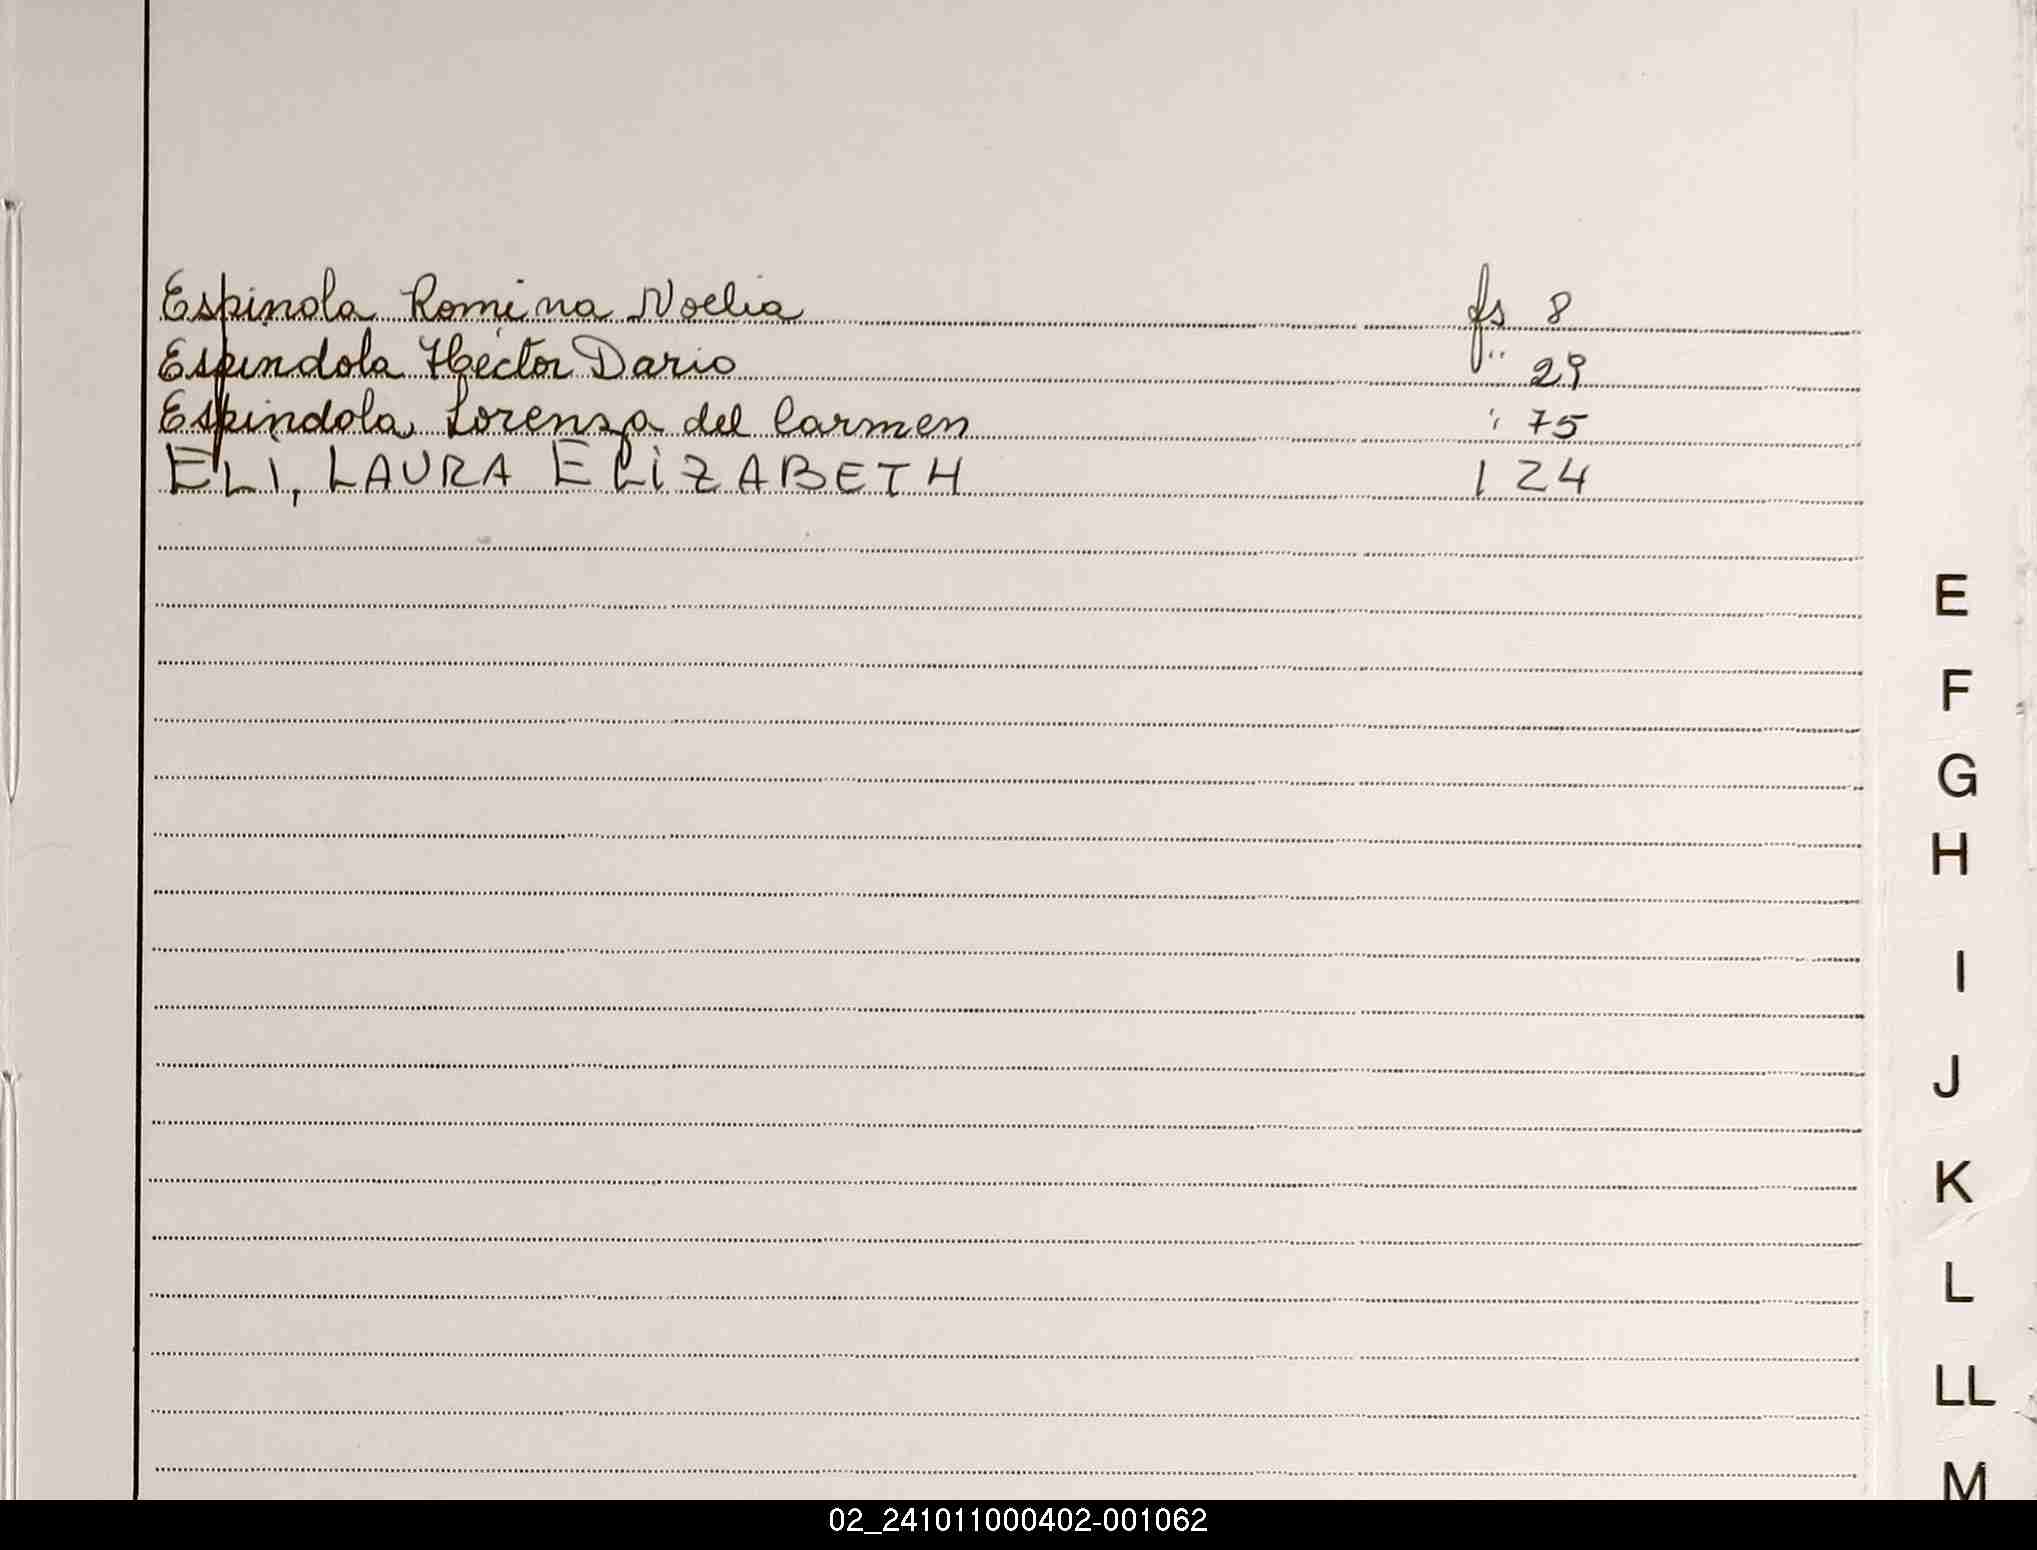 Espinola Romina Noelia fs 8
Espindola Héctor Dario " 29
Espindola Lorenza del Carmen " 75
ELI, LAURA ELIZABETH 124
E
F
G
H
I
J
K
L
LL
M
02_241011000402-001062